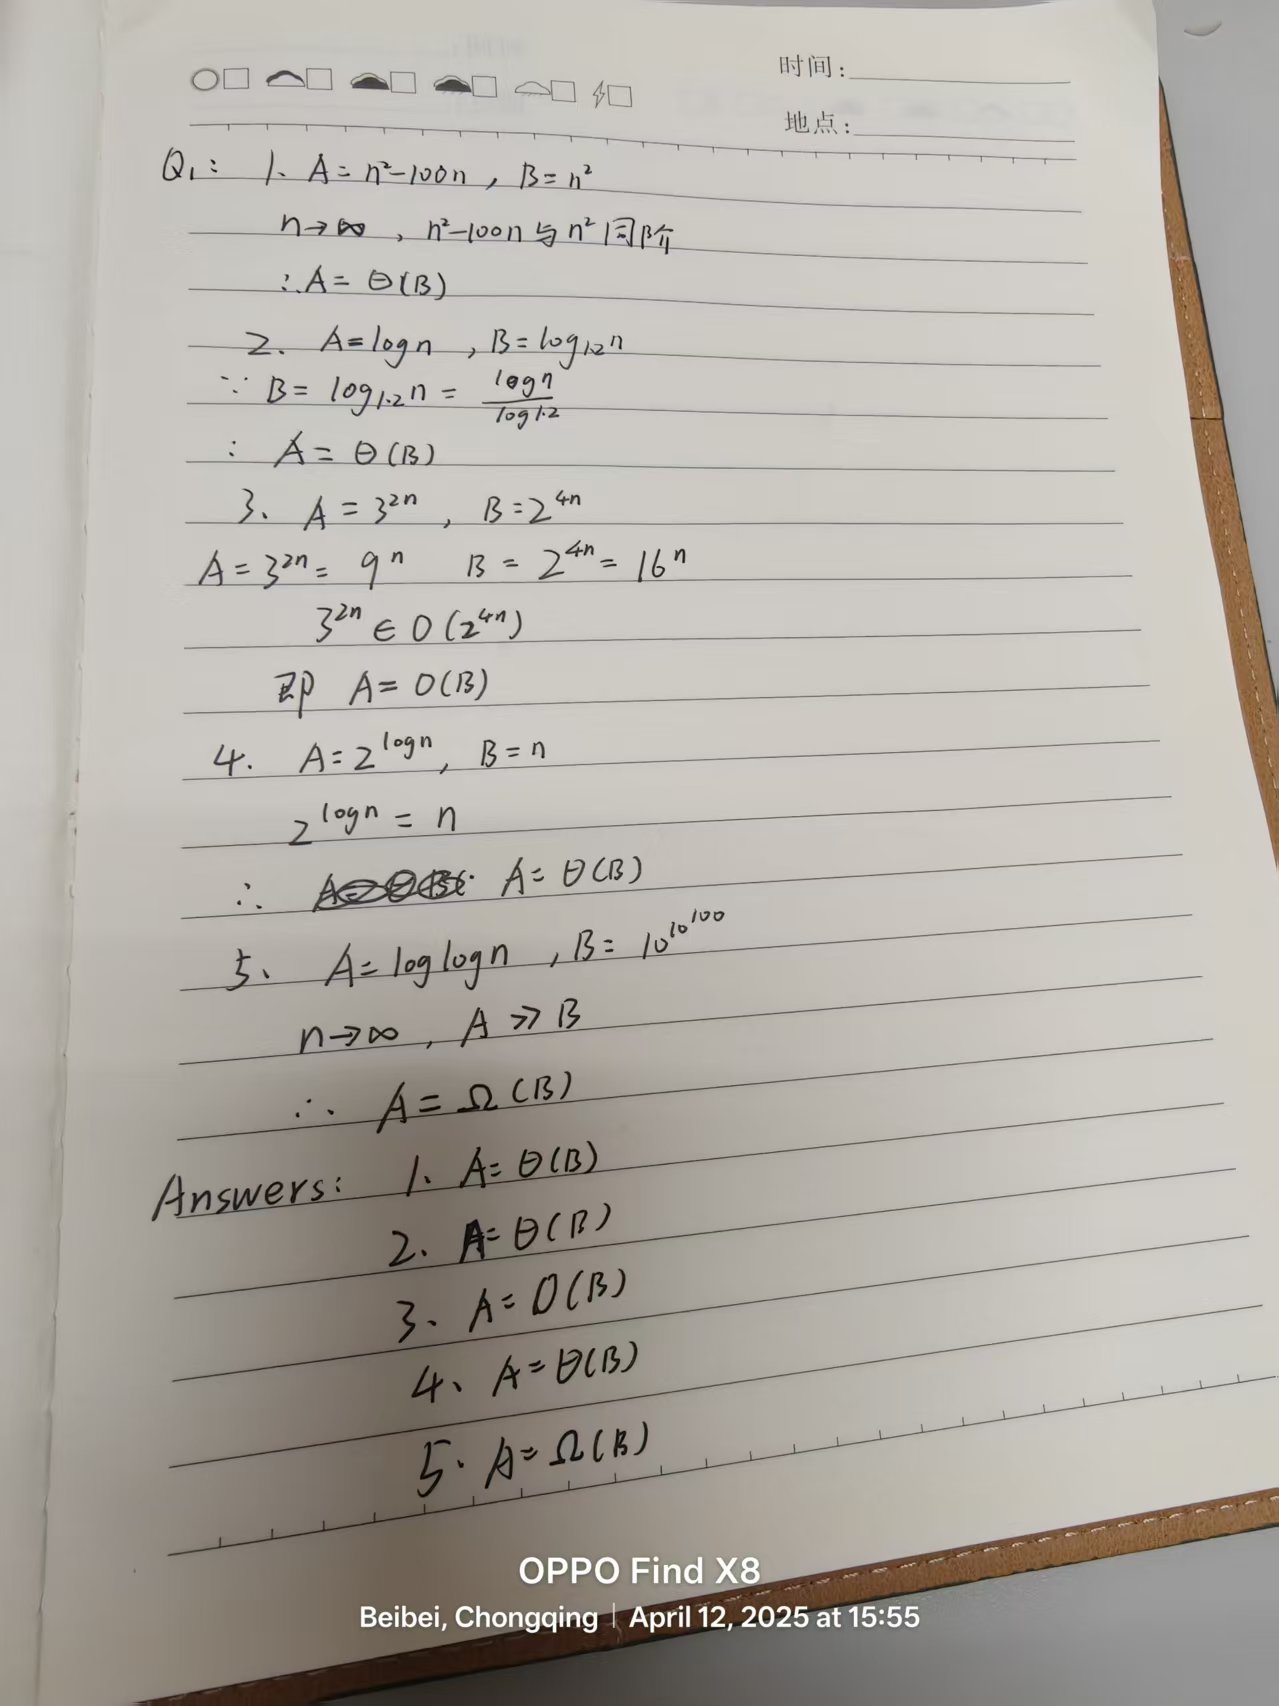 时间:
地点:
Q1: 1. A = n²-100n, B = n²
n→∞, n²-100n 与 n² 同阶
∴ A = Θ(B)
2. A = log n, B = log₁.₂n
∵ B = log₁.₂n = log n / log 1.2
: A = Θ(B)
3. A = 3²ⁿ, B = 2⁴ⁿ
A = 3²ⁿ = 9ⁿ B = 2⁴ⁿ = 16ⁿ
3²ⁿ ∈ O(2⁴ⁿ)
即 A = O(B)
4. A = 2^log n, B = n
2^log n = n
∴ A = Θ(B)
5. A = log log n, B = 10^10^100
n→∞, A ≫ B
∴ A = Ω(B)
Answers: 1. A = Θ(B)
2. A = Θ(B)
3. A = O(B)
4. A = Θ(B)
5. A = Ω(B)
OPPO Find X8
Beibei, Chongqing | April 12, 2025 at 15:55